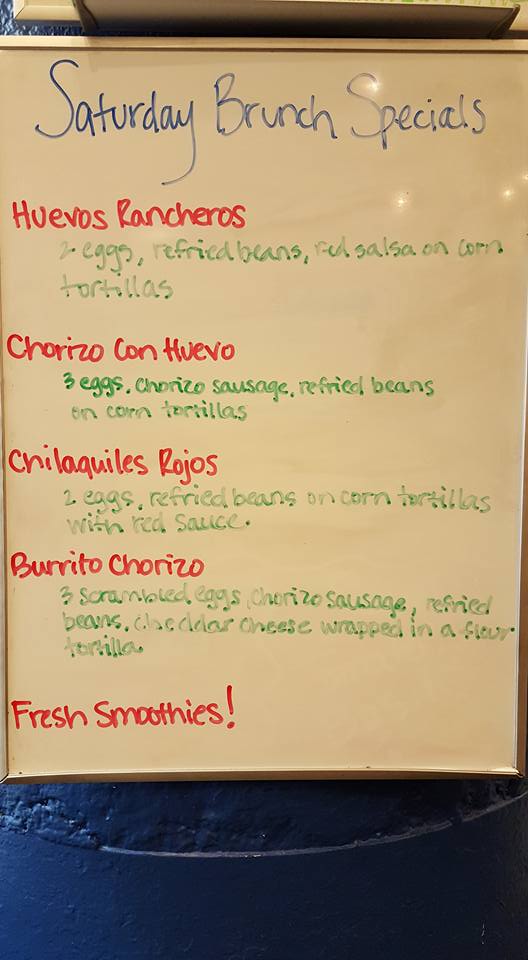 Saturday Brunch Specials
Huevos Rancheros
2 eggs, refried beans, red salsa on corn
tortillas
Chorizo Con Huevo
3 eggs, chorizo sausage, refried beans
on corn tortillas
Chilaquiles Rojos
2 eggs, refried beans on corn tortillas
with red sauce.
Burrito Chorizo
3 scrambled eggs, chorizo sausage, refried
beans, cheddar cheese wrapped in a flour
tortilla
Fresh Smoothies!